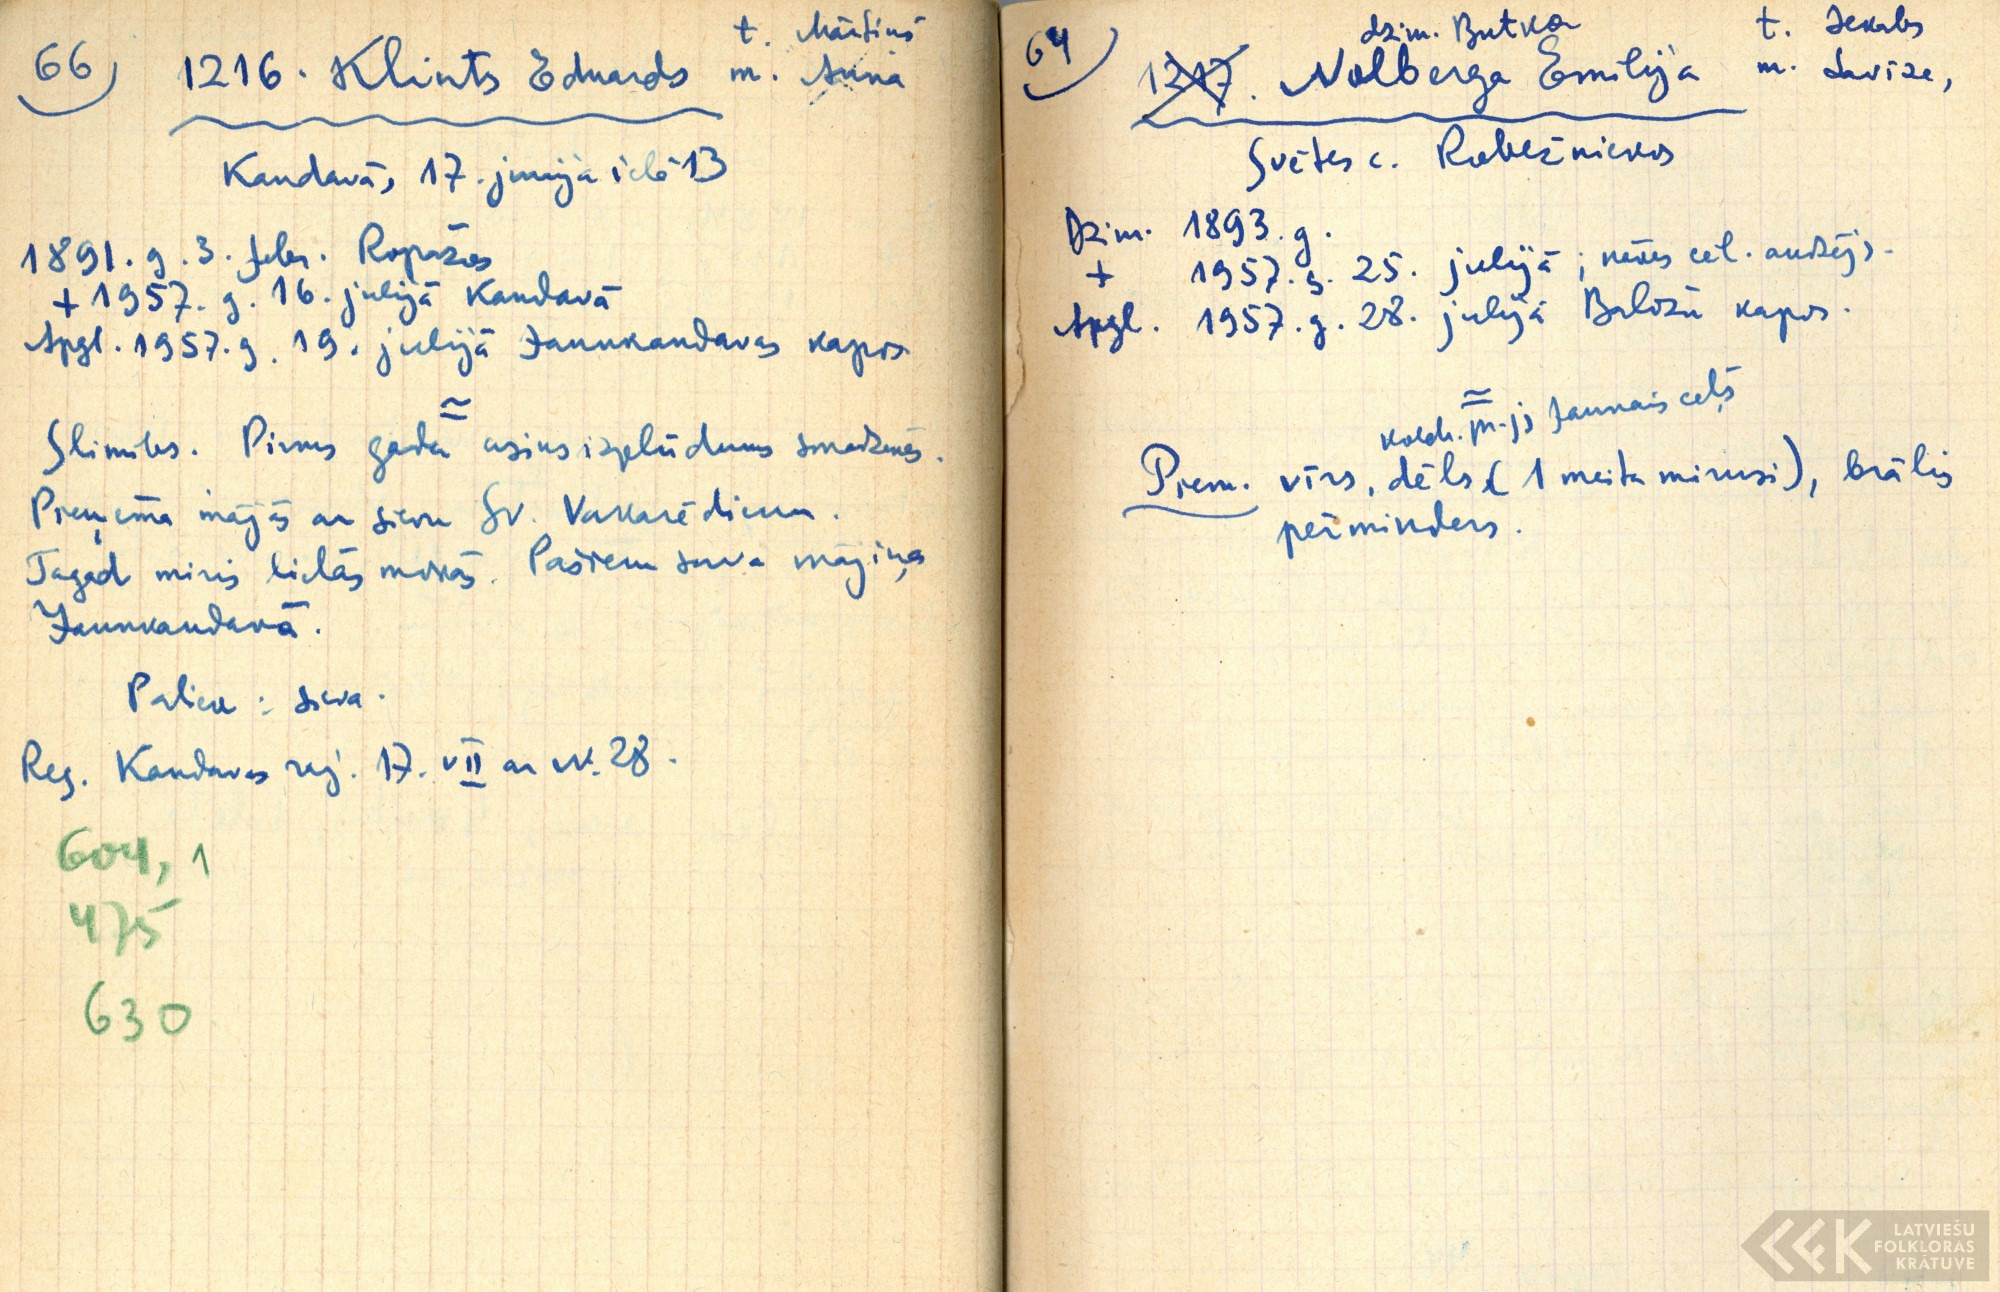 66) 1216. Klints Eduards t. Mārtiņš
m. Anna
Kandavā, 17. jūnija ielā 13
1891. g. 3. febr. Ropažos
+ 1957. g. 16. jūlijā Kandavā
Apgl. 1957. g. 19. jūlijā Jaunkandavas kapos
=
Slimības. Pirms gada asins izplūdums smadzenēs.
Pieņēma mājās ar sievu Sv. Vakarēdienu.
Tagad miris lielās mokās. Pašiem sava mājiņa
Jaunkandavā.
Paliek: sieva.
Reg. Kandavas raj. 17. VII ar N. 28.
604, 1
475
630
64) 1217. Nolberga Emilija
dzim. Butka
t. Jekabs
m. Lavize,
Svētes c. Robežniekos
Dzim. 1893. g.
+ 1957. g. 25. jūlijā;
Apgl. 1957. g. 28. jūlijā Baložu kapos.
=
Jaunais ceļš
Piem. vīrs, dēls (1 meita mirusi), brālis
pērminders.
LATVIEŠU
FOLKLORAS
KRĀTUVE